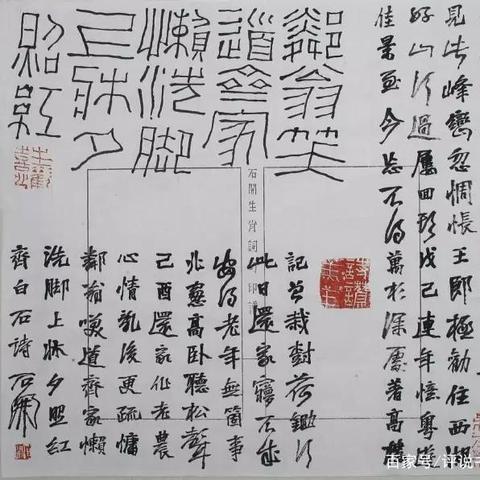 見此峰巒忽惆悵王郎極勸住西湖
好山行過屢回頭戊己連年憶粵游
佳景至今忘不得萬松深處著高樓
鄰翁笑
道齊家
懶洗脚
上牀夕
照紅
記曾栽樹荷鋤行
此日還家寢不成
安得老年無箇事
北窗高卧聽松聲
己酉還家作老農
心情亂後更疏慵
鄰翁笑道齊家懶
洗脚上牀夕照紅
齊白石詩 石開
石開生肖詞印譜
百家号/评说